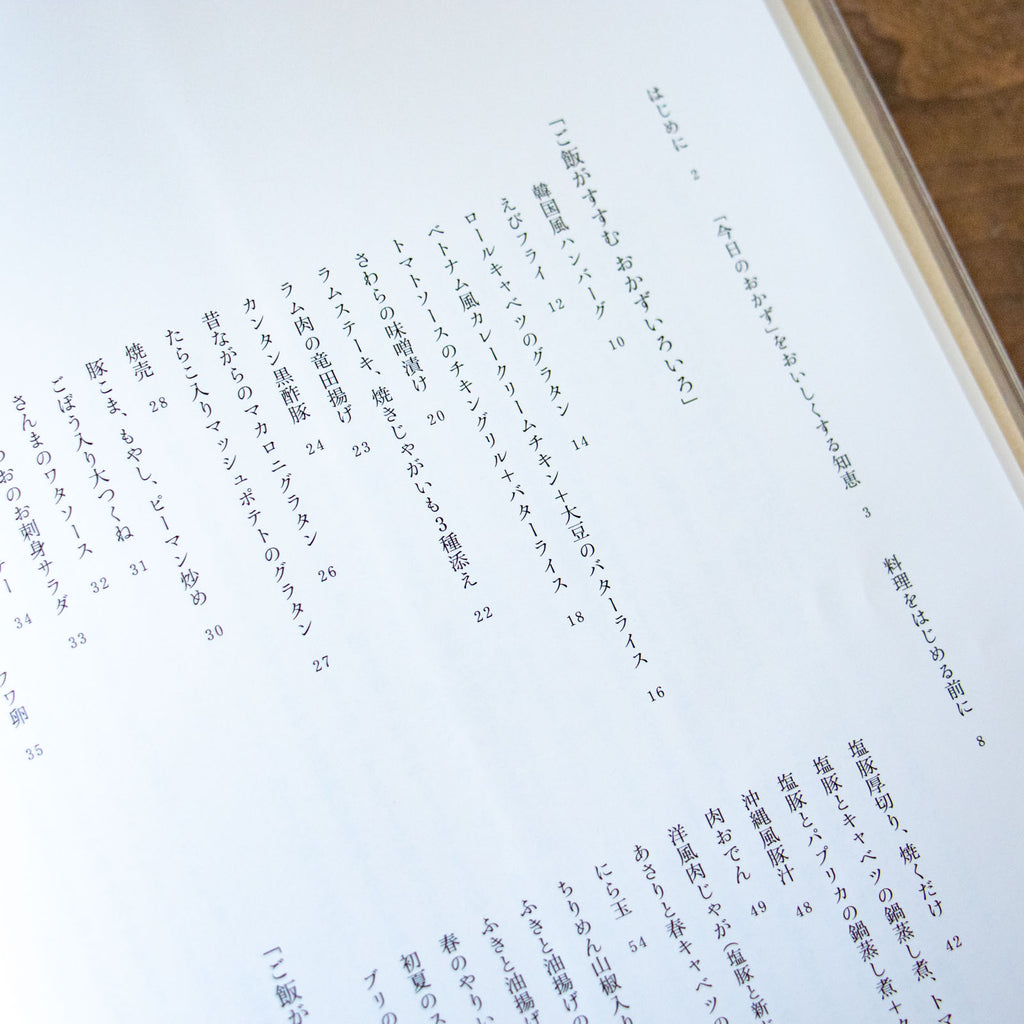 はじめに 2
「今日のおかず」をおいしくする知恵 3
料理をはじめる前に 8
「ご飯がすすむ おかずいろいろ」
韓国風ハンバーグ 10
えびフライ 12
ロールキャベツのグラタン 14
ベトナム風カレークリームチキン＋大豆のバターライス 16
トマトソースのチキングリル＋バターライス 18
さわらの味噌漬け 20
ラムステーキ、焼きじゃがいも3種添え 22
ラム肉の竜田揚げ 23
カンタン黒酢豚 24
昔ながらのマカロニグラタン 26
たらこ入りマッシュポテトのグラタン 27
焼売 28
豚こま、もやし、ピーマン炒め 30
ごぼう入り大つくね 31
さんまのワタソース 32
おのお刺身サラダ 33
34
卵 35
塩豚厚切り、焼くだけ 42
塩豚とキャベツの鍋蒸し煮、トマ
塩豚とパプリカの鍋蒸し煮＋
沖縄風豚汁 48
肉おでん 49
洋風肉じゃが（塩豚と新じ
あさりと春キャベツの
にら玉 54
ちりめん山椒入り
ふきと油揚げの
ふきと油揚げ
春のやりい
初夏のス
ブリの
「ご飯が